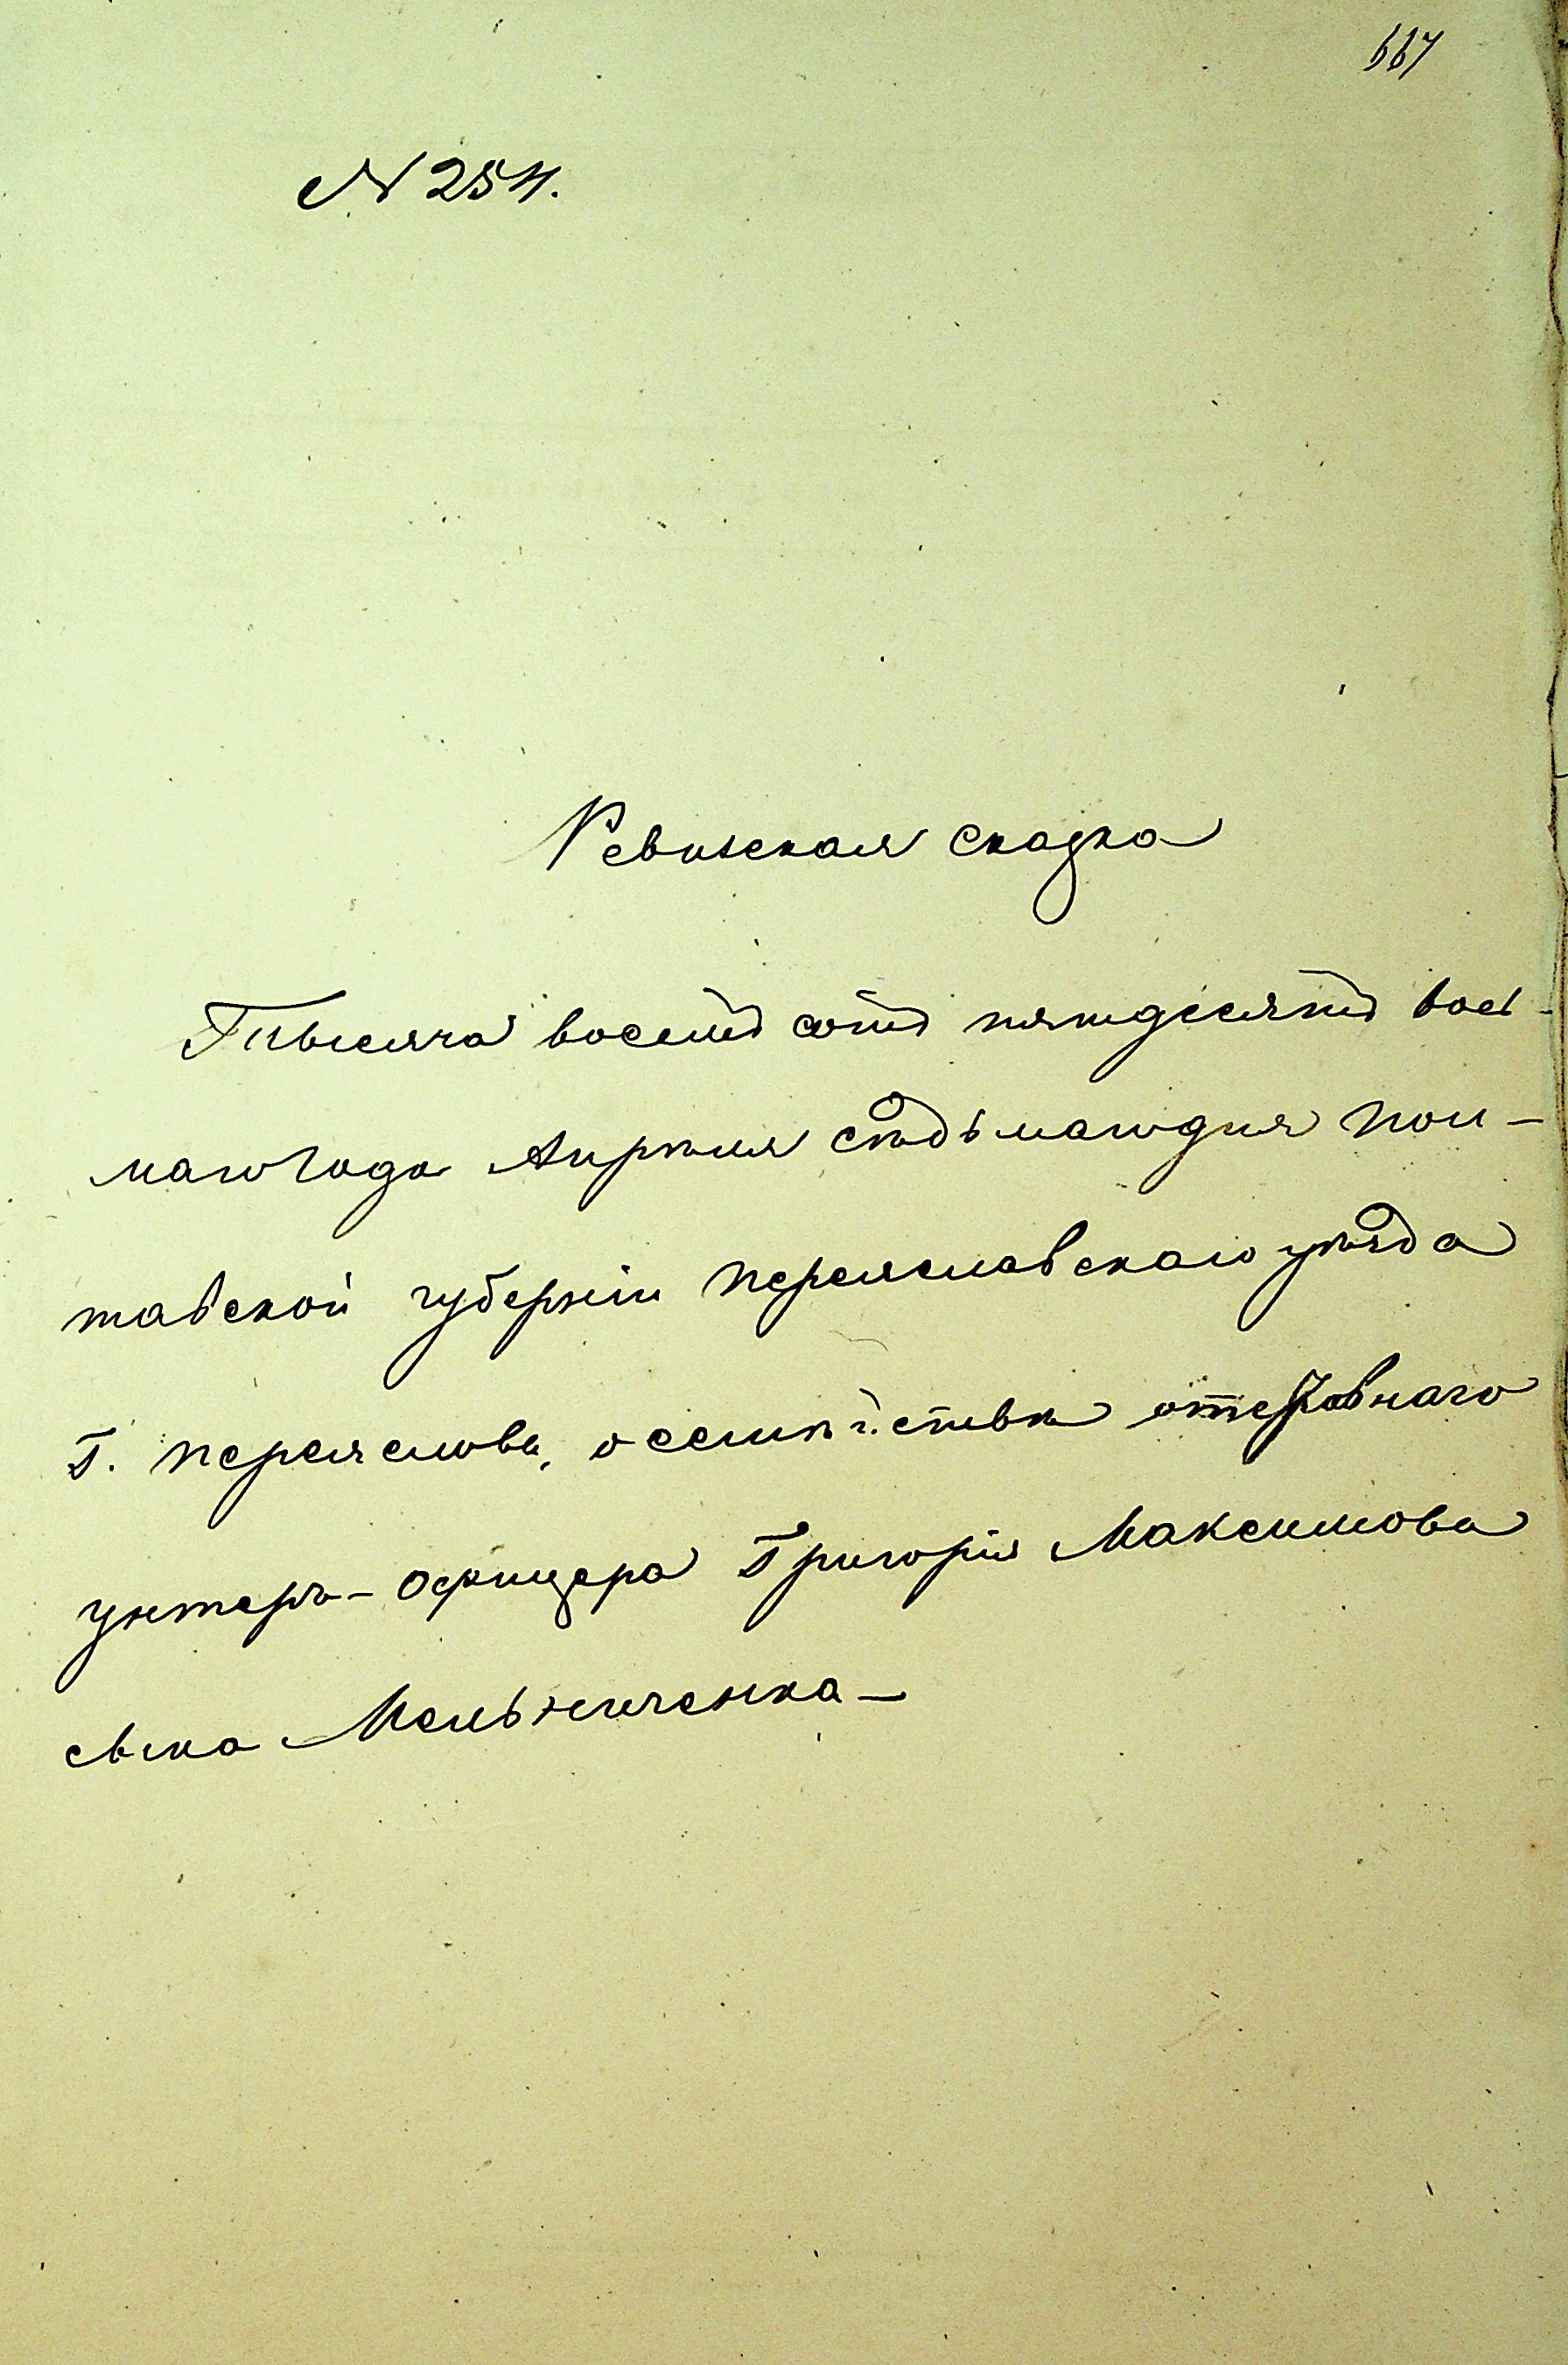 667
№ 254.
Ревизская сказка
Тысяча восемь сотъ пятдесятъ вось-
маго года Апрѣля сѣдьмаго дня Пол-
тавской губерніи Переяславскаго уѣзда
Г. Переяслова, о семѣйствѣ отставнаго
унтеръ-офицера Григорія Максимова
сына Мельниченка –